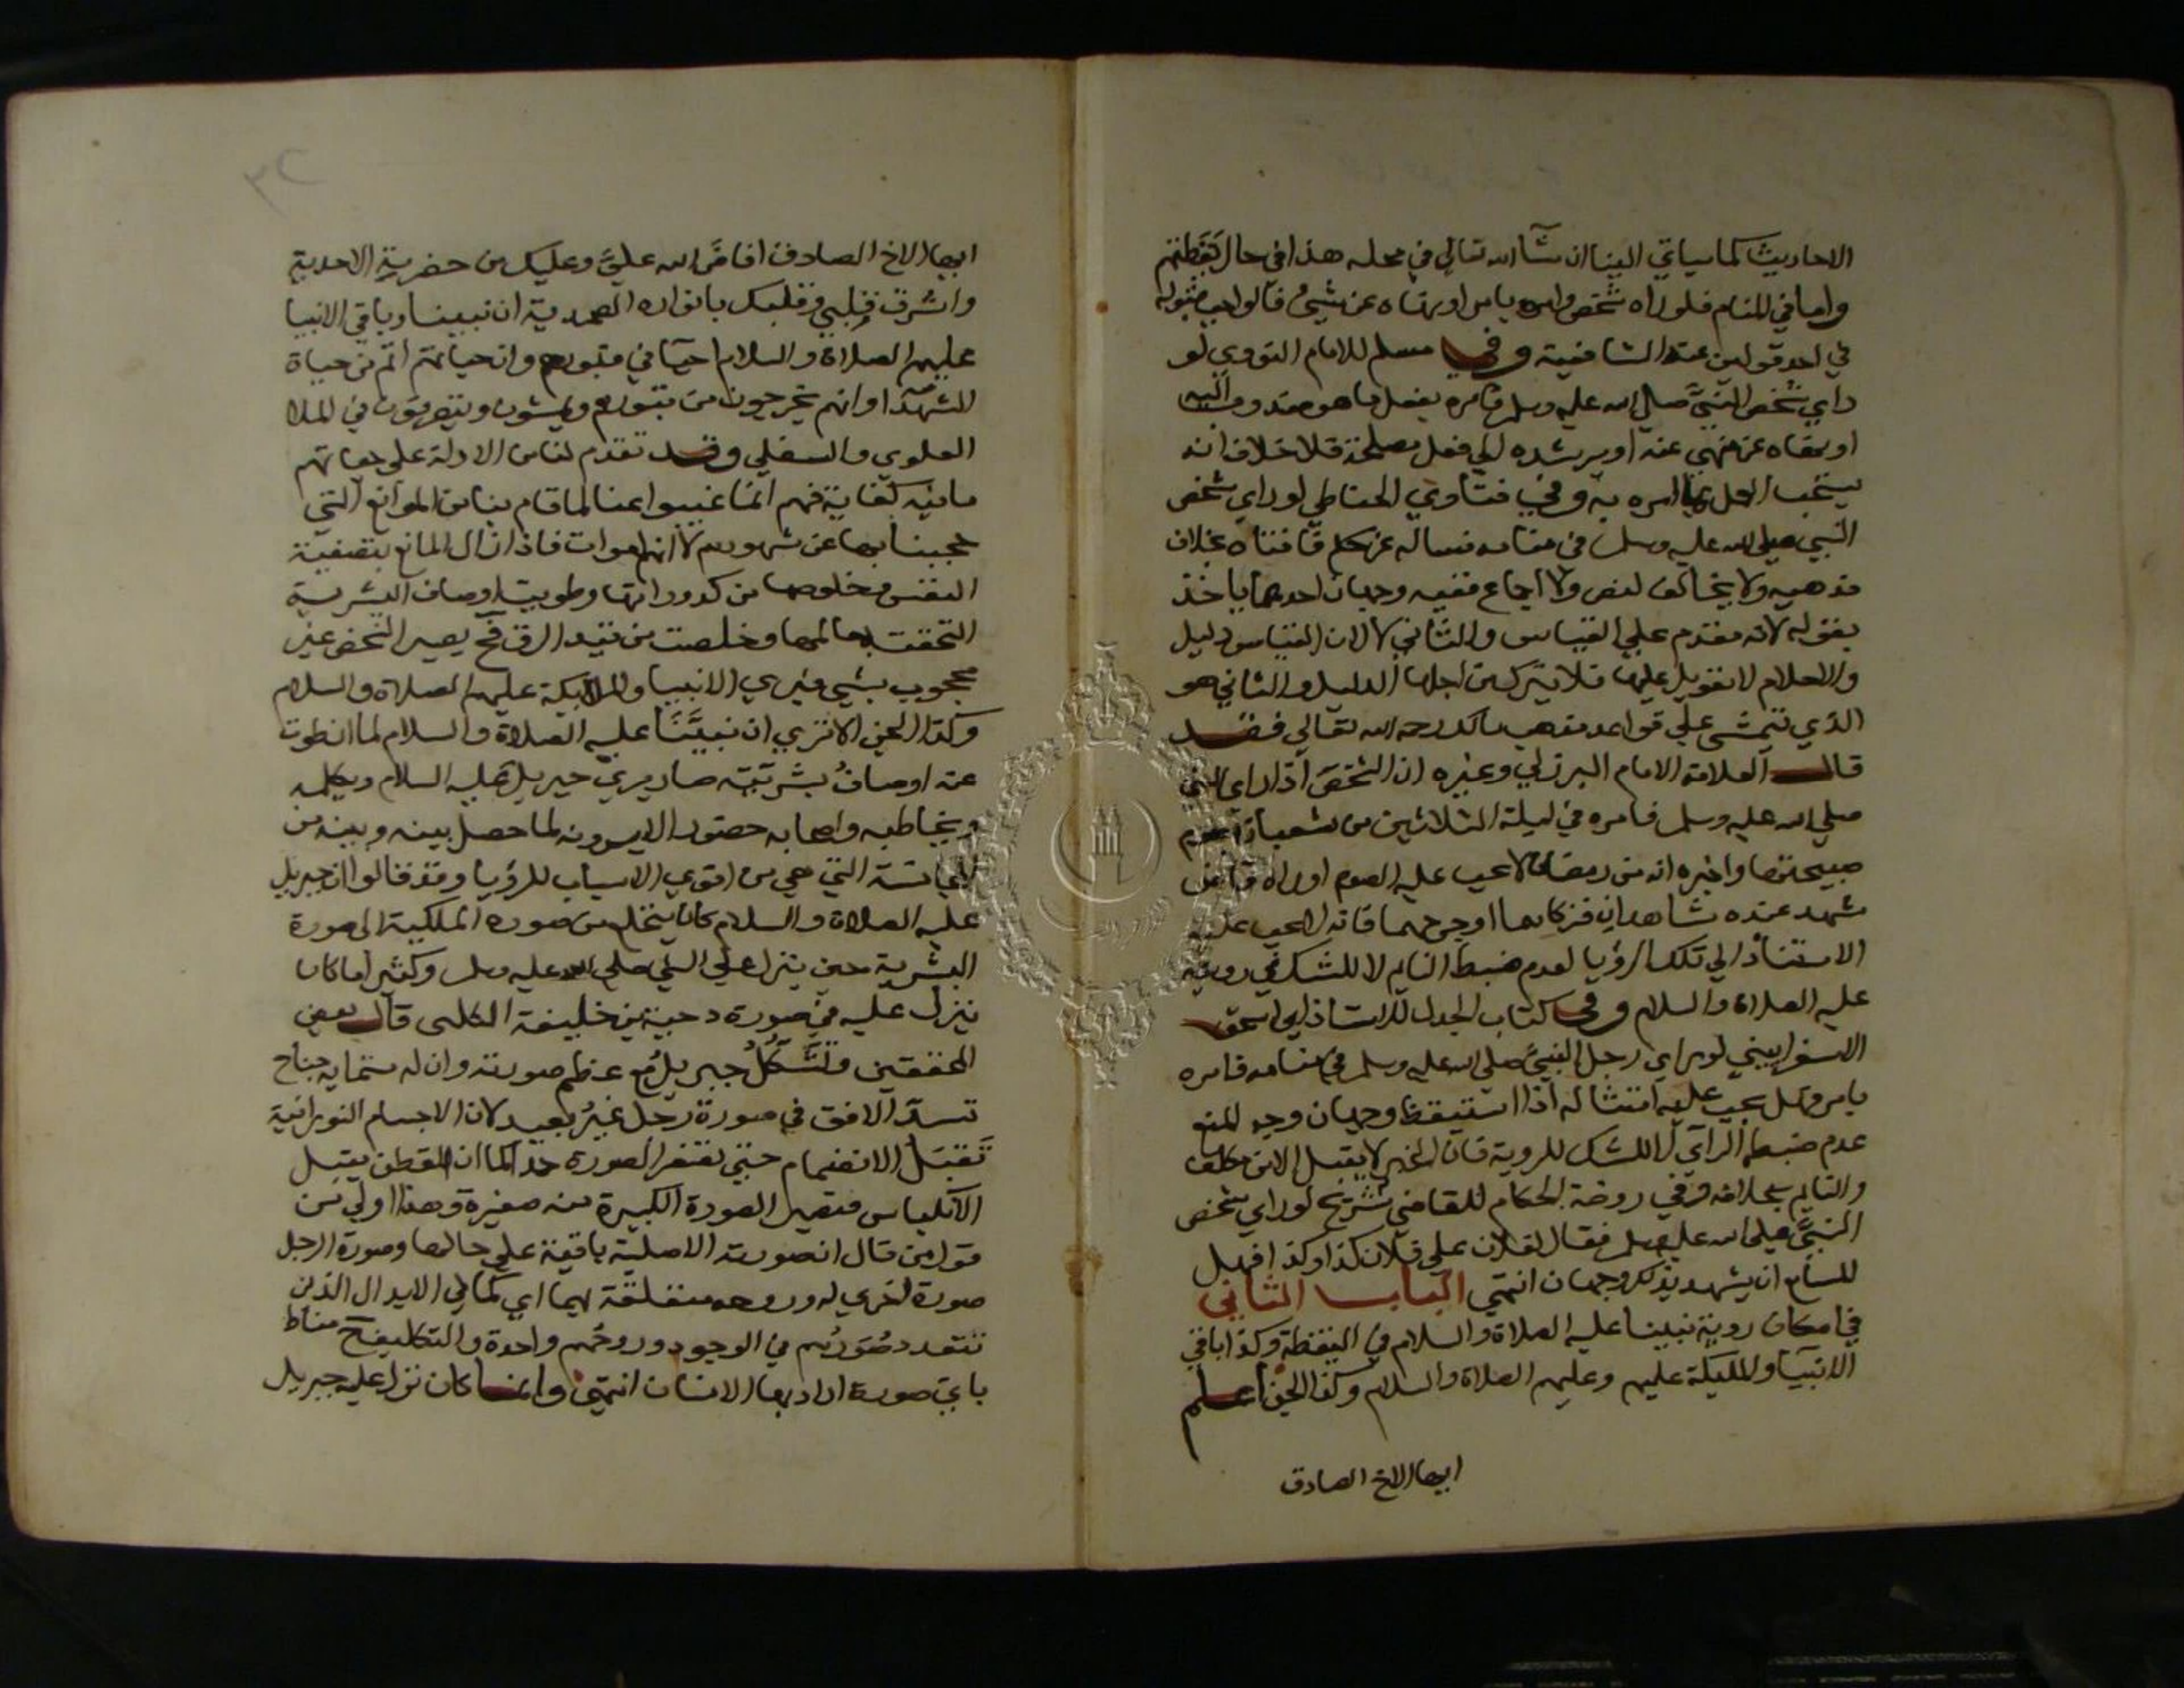 الاحاديث كما سياتي البنا ان شآ الله تعالي في محله هذا في حال يَقَظتهم
واما في المنام فلو راه شخص وامره بامر او نهاه عن شيئ قالواجب قبوله
في احد قولين عند الشافعية وفي مسلم للامام النووي لو
راي شخص النبيَّ صلي الله عليه وسلم يامره بفعل ما هو مندوب اليه
او ينهاه عن منهي عنه او يرشده الي فعل مصلحة فلا خلاف انه
يستحب العمل بما امره به وفي فتاوي الحناطي لو راي شخص
النبي صلي الله عليه وسلم في منامه فساله عن حكم فافتاه بخلاف
مذهبه ولا يخالف لنص ولا اجماع ففيه وجهان احدهما ياخذ
بقوله لانه مقدم علي القياس والثاني لا لان القياس دليل
والاحلام لا تعويل عليها فلا يترك من اجلها الدليل والثاني هو
الذي تتمشي علي قواعد مذهب مالك رحمه الله تعالي فقد
قال العلامة الامام البرزلي وغيره ان الشخص اذا راي النبي
صلي الله عليه وسلم فامره في ليلة الثلاثين من شعبان بصوم
صبيحتها واخبره انه من رمضان لا يجب عليه الصوم او راه قاض
شهد عنده شاهدان فزكاهما او جرحهما فانه لا يجب عليه
الاستناد الي تلك الرؤيا لعدم ضبط النايم لا للشك في رويته
عليه الصلاة والسلام وفي كتاب الجدل للاستاذ ابي اسحق
الاسفراييني لو راي رجل النبيَّ صلي الله عليه وسلم في منامه فامره
بامر هل يجب عليه امتثاله اذا استيقظ وجهان وجه المنع
عدم ضبط الراي لا للشك للروية فان الخبر لا يقبل الا من مكلف
والنايم بخلافه وفي روضة الحكام للقاضي شريح لو راي شخص
النبيَّ صلي الله عليه وسلم فقال لفلان علي فلان كذا وكذا فهل
للسامع ان يشهد بذلك وجهان انتهي الباب الثاني
في امكان روية نبينا عليه الصلاة والسلام في اليقظة وكذا باقي
الانبيآ والمليكة عليهم وعليهم الصلاة والسلام وكذا الجن اعلم
ايها الاخ الصادق
٣٢
ايها الاخ الصادق افاضَ الله عليَّ وعليك من حضرته الاحدية
واشرق قلبي وقلبك بانواره الصمدية ان نبينا وباقي الانبيا
عليهم الصلاة والسلام احيآ في قبورهم وان حياتهم اتم من حياة
الشهدآ وانهم يخرجون من قبورهم ويمشون ويتصرفون في الملا
العلوي والسفلي وقد تقدم لنا من الادلة علي حياتهم
ما فيه كفاية فهم انما غيبوا عنا لما قام بنا من الموانع التي
حجبنا بها عن شهودهم لا انهم اموات فاذا زال المانع بتصفية
النفس وخلوصها من كدوراتها وطويت اوصاف البشرية
التحقت بعالمها وخلصت من قيد الرق فح يصير الشخص غير
محجوب بشي فيري الانبيا والملايكة عليهم الصلاة والسلام
وكذا الجن الا تري ان نبيَّنَا عليه الصلاة والسلام لما انطوت
عنه اوصافُ بشريّته صار يري جبريل عليه السلام ويكلمه
ويخاطبه واصحابه حضور لا يرونه لما حصل بينه وبينه من
المجانسة التي هي من اقوي الاسباب للرؤيا وقد قالوا ان جبريل
عليه الصلاة والسلام كان ينخلع من صورة الملكية الي صورة
البشرية حين ينزل علي النبي صلي الله عليه وسلم وكثيرا ما كان
ينزل عليه في صورة دحية بن خليفة الكلبي قال بعض
المحققين وتَشَكُّلُ جبريلُ مع عظم صورته وان له ستماية جناح
تسدّ الافق في صورة رجل غيرُ بعيد لان الاجسام النورانية
تَقبَلُ الانضمام حتي تصغر الصورة جدا كما ان القطن يقبل
الانكباس فتصير الصورة الكبيرة منه صغيرة وهذا اولي من
قول من قال ان صورته الاصلية باقية علي حالها وصورة الرجل
صورة اخري له وروحه متعلقة بهما اي كما في الابدال الذين
تتعدد صُوَرُهم في الوجود وروحُهم واحدة والتكليف ح مناط
باي صورة اراد بها الانسان انتهي وانما كان نزول عليه جبريل